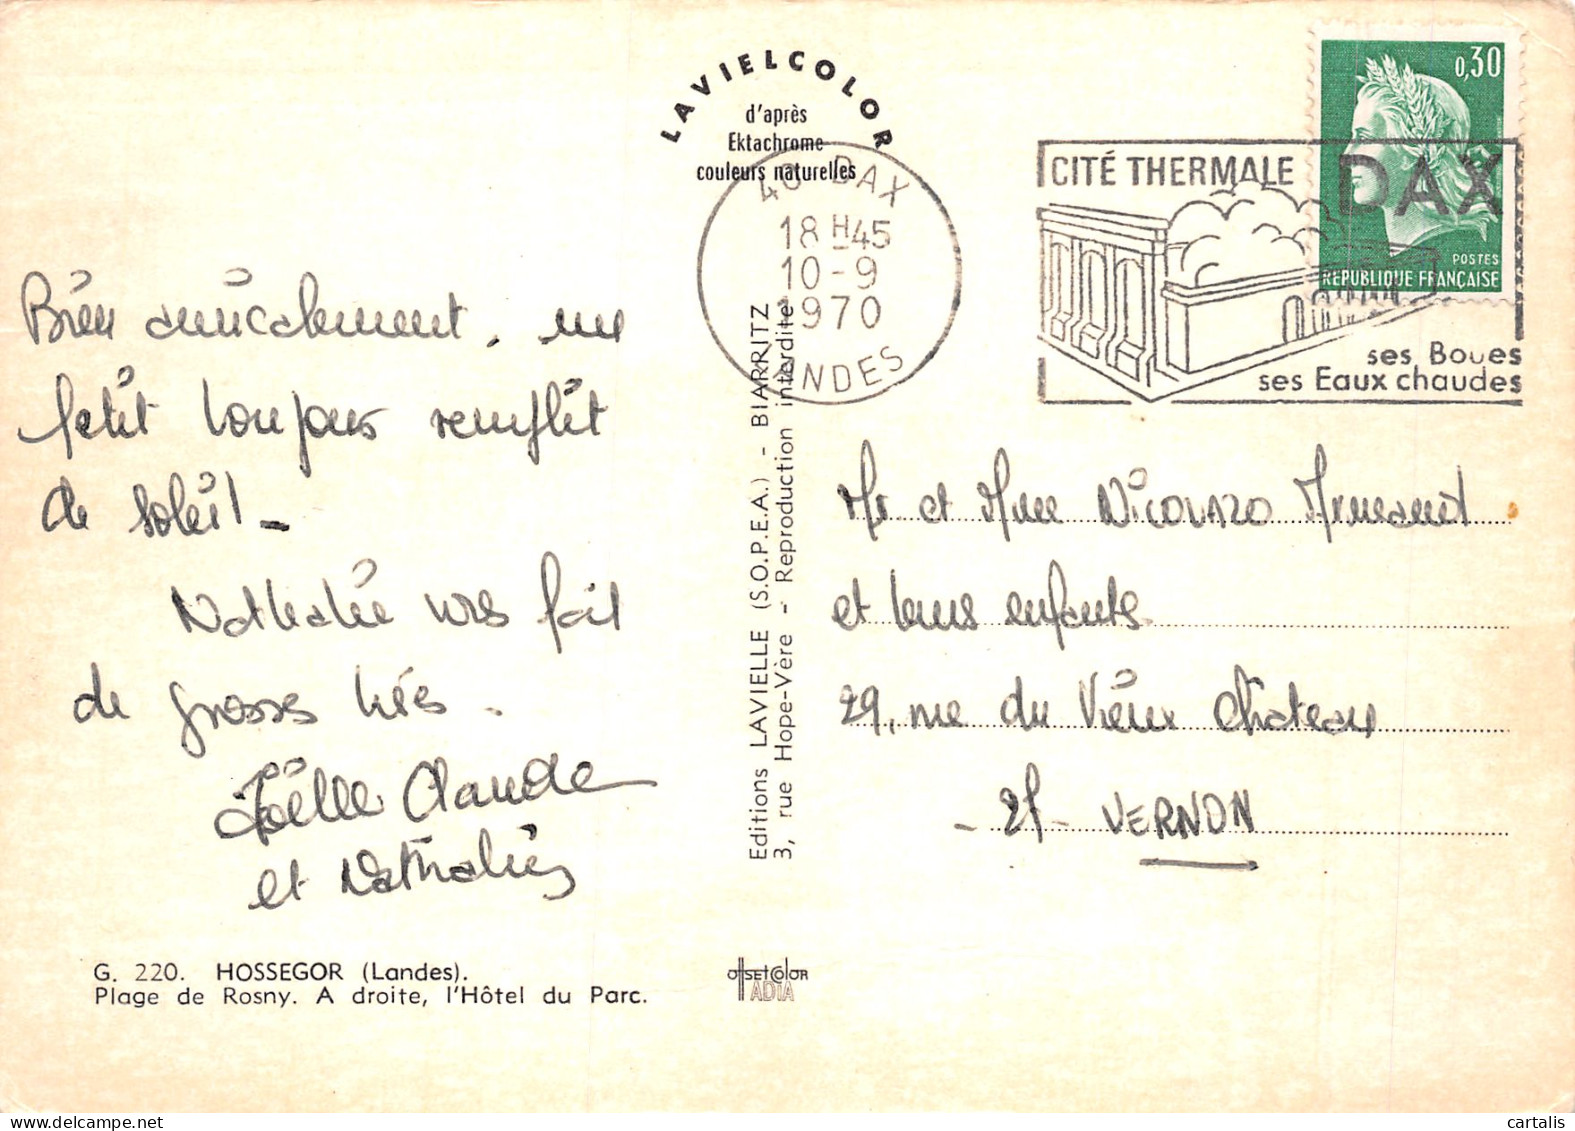 LAVIELCOLOR
d'après
Ektachrome
couleurs naturelles
40 DAX
18 H 45
10-9
1970
LANDES
0,30
POSTES
REPUBLIQUE FRANÇAISE
CITÉ THERMALE DAX
ses Boues
ses Eaux chaudes
Bien amicalement, un
petit toujours remplit
de soleil -
Nathalie vous fait
de grosses bises.
Joëlle Claude
et Nathalie
Editions LAVIELLE (S.O.P.E.A.) - BIARRITZ
3, rue Hope-Vère - Reproduction interdite
Mr et Mme NICOLAZO Armand
et leurs enfants
29, rue du Vieux Chateau
- 27 - VERNON
G. 220. HOSSEGOR (Landes).
Plage de Rosny. A droite, l'Hôtel du Parc.
OFFSET COLOR
IADIA
cartalis